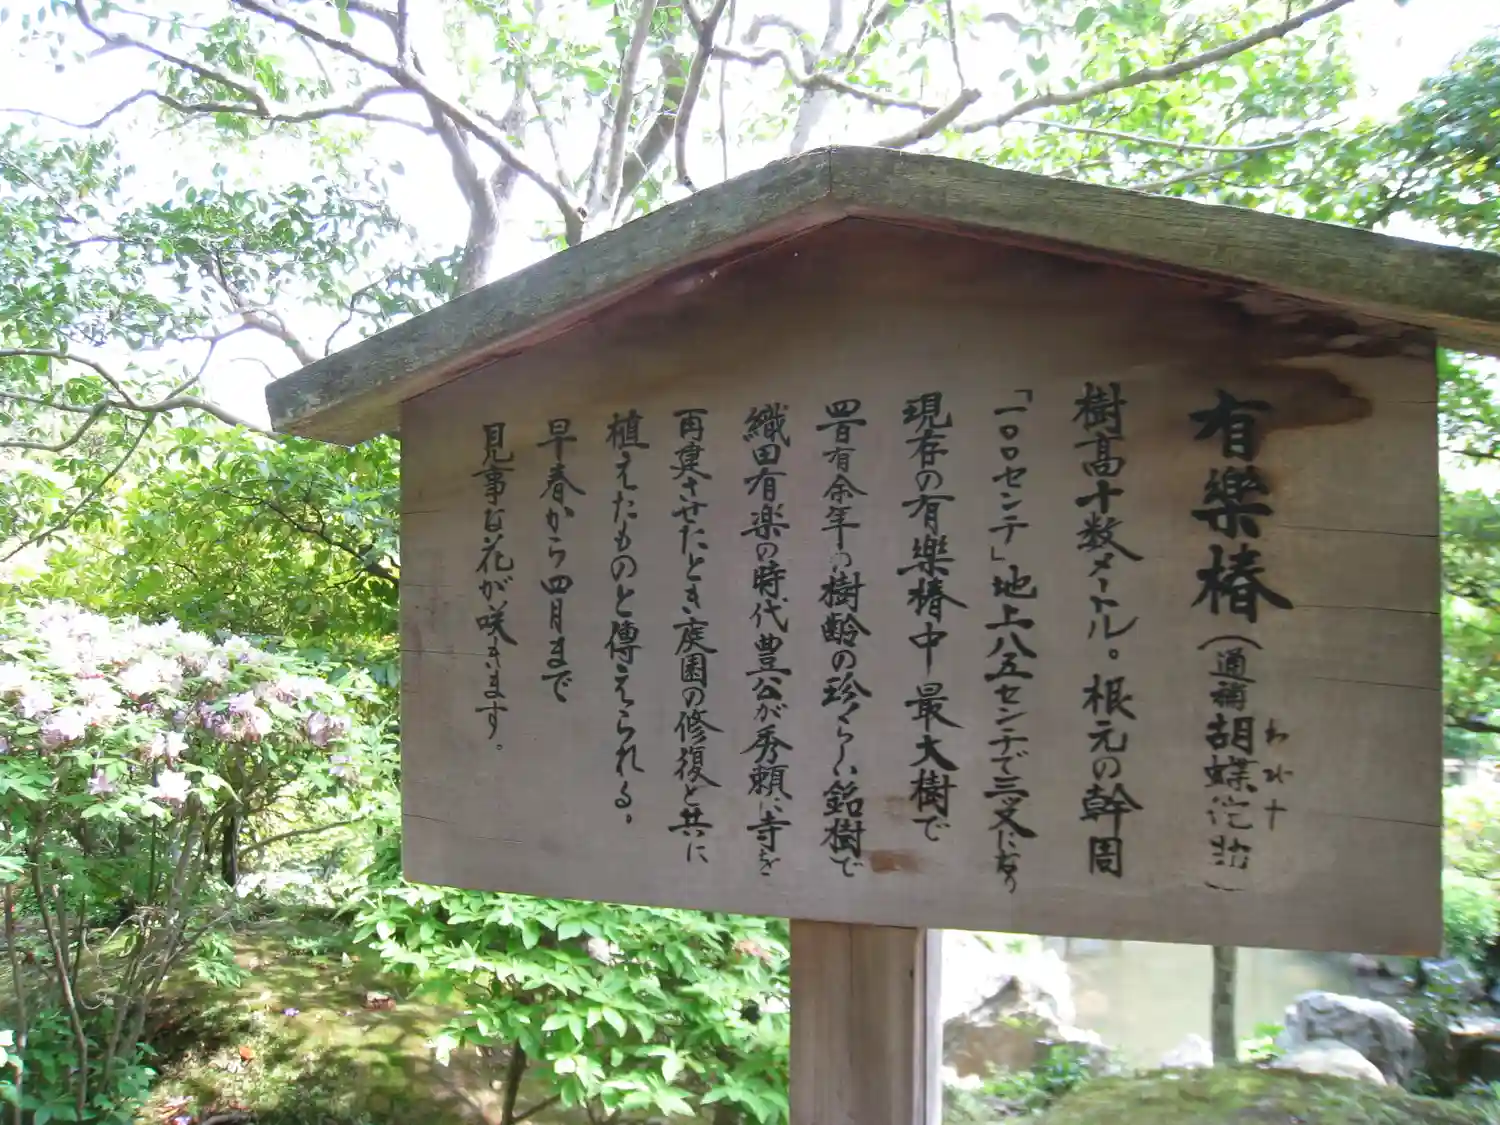 有樂椿(通稱胡蝶侘助)
わびす
樹高十数メートル。根元の幹周
「一〇〇センテ」地上八五センチで三叉になり
現存の有樂椿中最大樹で
四百有余年の樹齢の珍らしい銘樹で
織田有楽の時代豊公が秀頼に寺を
再建させたとき庭園の修復と共に
植えたものと傳えられる。
早春から四月まで
見事な花が咲きます。